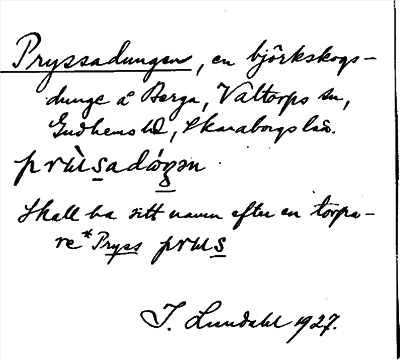 Pryssadungen, en björkskogs-
dunge å Berga, Valtorps sn,
Gudhems hd, Skaraborgs län.
prùsadáŋən
Skall ha sitt namn efter en torpa-
re *Pryss prʉs
I. Lundahl 1927.